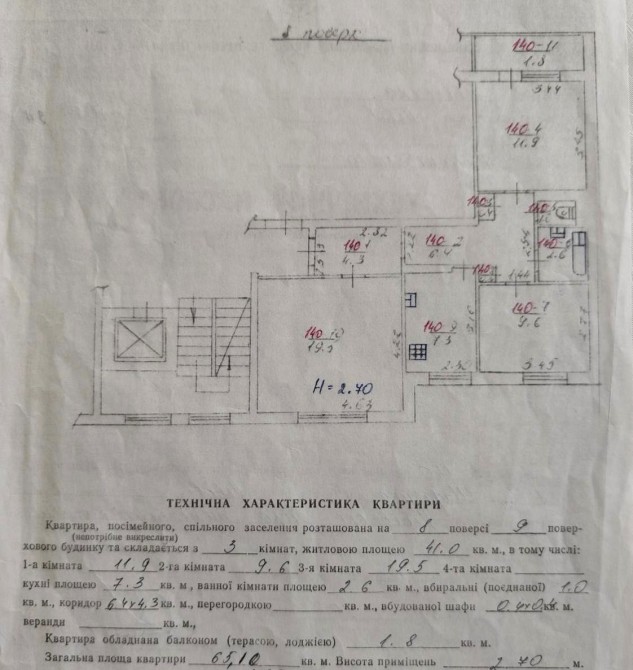 8 поверх
140-11
1.8
3.44
140-4
11.9
3.45
140-5
1.0
140-6
2.6
2.32
140-1
4.3
140-2
6.4
1.44
140-7
9.6
3.45
140-9
7.3
2.30
140-10
19.5
4.23
H = 2.70
4.63
ТЕХНІЧНА ХАРАКТЕРИСТИКА КВАРТИРИ
Квартира, посімейного, спільного заселення розташована на 8 поверсі 9 повер-
(непотрібне викреслити)
хового будинку та складається з 3 кімнат, житловою площею 41.0 кв. м., в тому числі:
1-а кімната 11.9 2-га кімната 9.6 3-я кімната 19.5 4-та кімната
кухні площею 7.3 кв. м., ванної кімнати площею 2.6 кв. м., вбиральні (поєднаної) 1.0
кв. м., коридор 6.4+4.3 кв. м., перегородкою кв. м., вбудованої шафи кв. м.
веранди кв. м.,
Квартира обладнана балконом (терасою, лоджією) 1.8 кв. м.
Загальна площа квартири 65,10 кв. м. Висота приміщень 2.70 м.